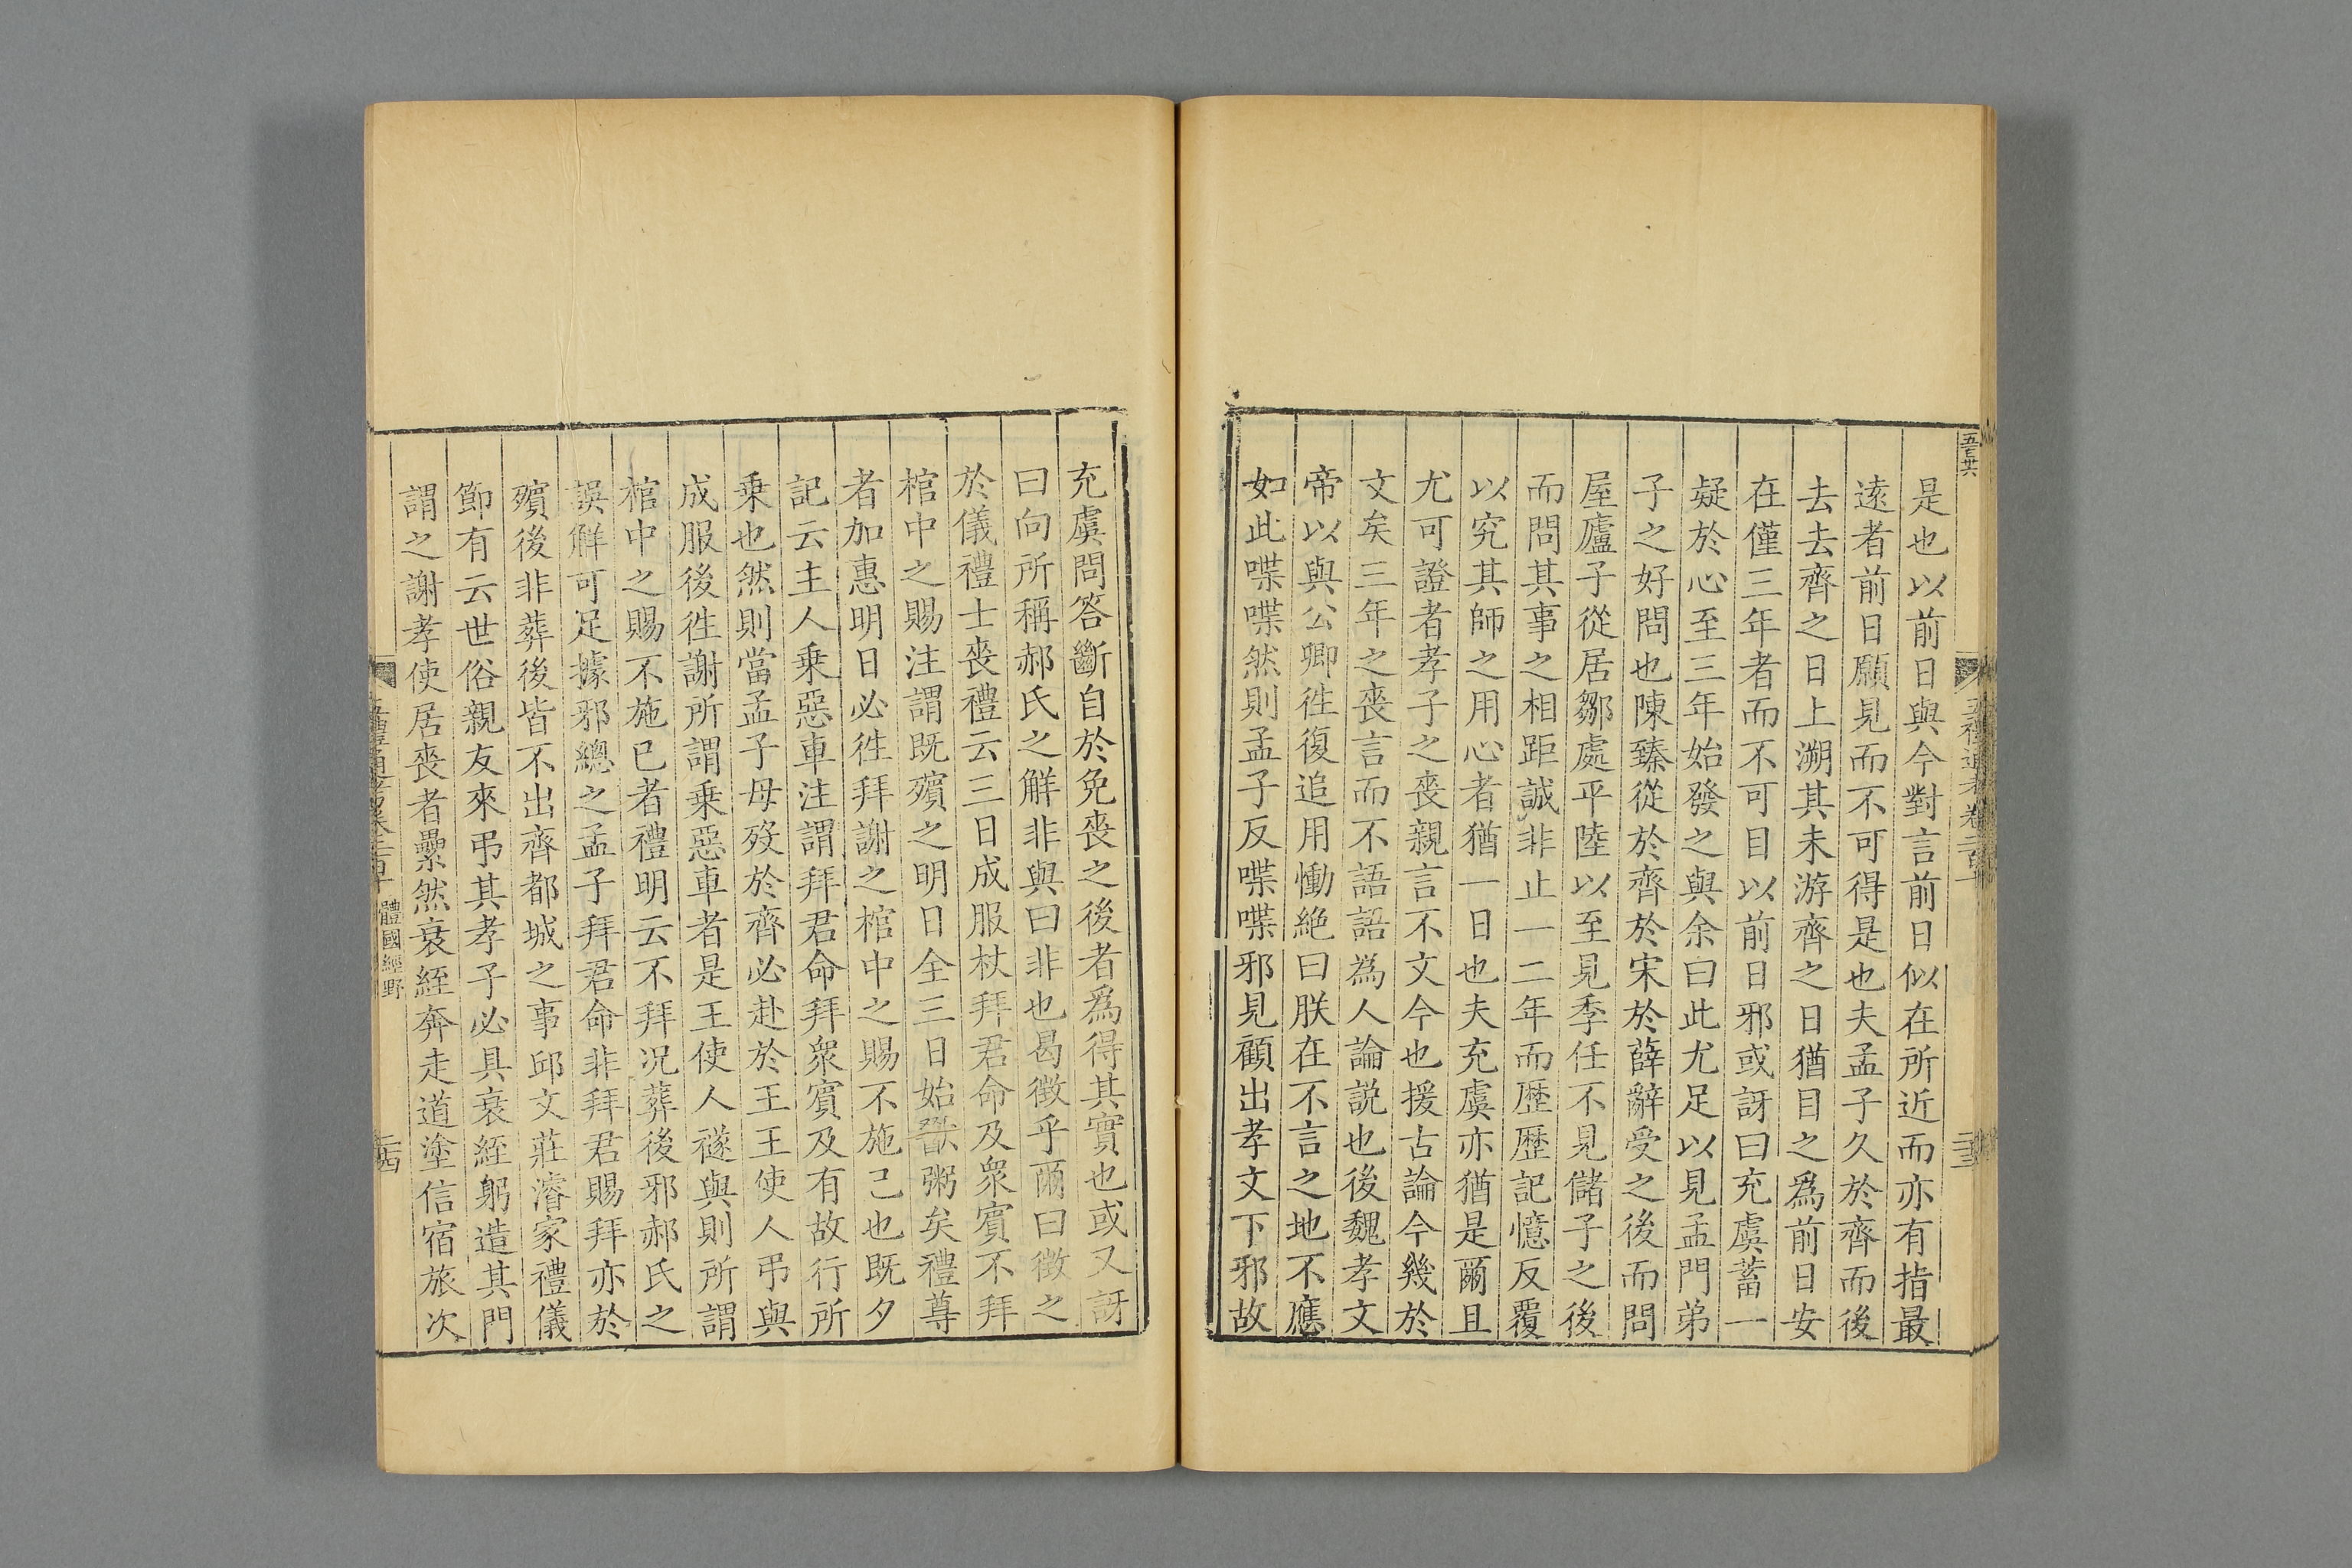 五百廿六
是也以前日與今對言前日似在所近而亦有指最
遠者前日願見而不可得是也夫孟子久於齊而後
去去齊之日上溯其未游齊之日猶目之爲前日安
在僅三年者而不可目以前日邪或訝曰充虞蓄一
疑於心至三年始發之與余曰此尤足以見孟門弟
子之好問也陳臻從於齊於宋於薛辭受之後而問
屋廬子從居鄒處平陸以至見季任不見儲子之後
而問其事之相距誠非止一二年而歷歷記憶反覆
以究其師之用心者猶一日也夫充虞亦猶是爾且
尤可證者孝子之喪親言不文今也援古論今幾於
文矣三年之喪言而不語語為人論説也後魏孝文
帝以與公卿徃復追用慟絶曰朕在不言之地不應
如此喋喋然則孟子反喋喋邪見顧出孝文下邪故
充虞問答斷自於免喪之後者爲得其實也或又訝
曰向所稱郝氏之解非與曰非也曷徴乎爾曰徴之
於儀禮士喪禮云三日成服杖拜君命及衆賓不拜
棺中之賜注謂既殯之明日全三日始歠粥矣禮尊
者加惠明日必徃拜謝之棺中之賜不施己也既夕
記云主人乗惡車注謂拜君命拜衆賓及有故行所
乗也然則當孟子母歿於齊必赴於王王使人弔與
成服後徃謝所謂乗惡車者是王使人襚與則所謂
棺中之賜不施已者禮明云不拜况葬後邪郝氏之
誤解可足據邪總之孟子拜君命非拜君賜拜亦於
殯後非葬後皆不出齊都城之事邱文莊濬家禮儀
節有云世俗親友來弔其孝子必具衰絰躬造其門
謂之謝孝使居喪者纍然衰絰奔走道塗信宿旅次
體國經野